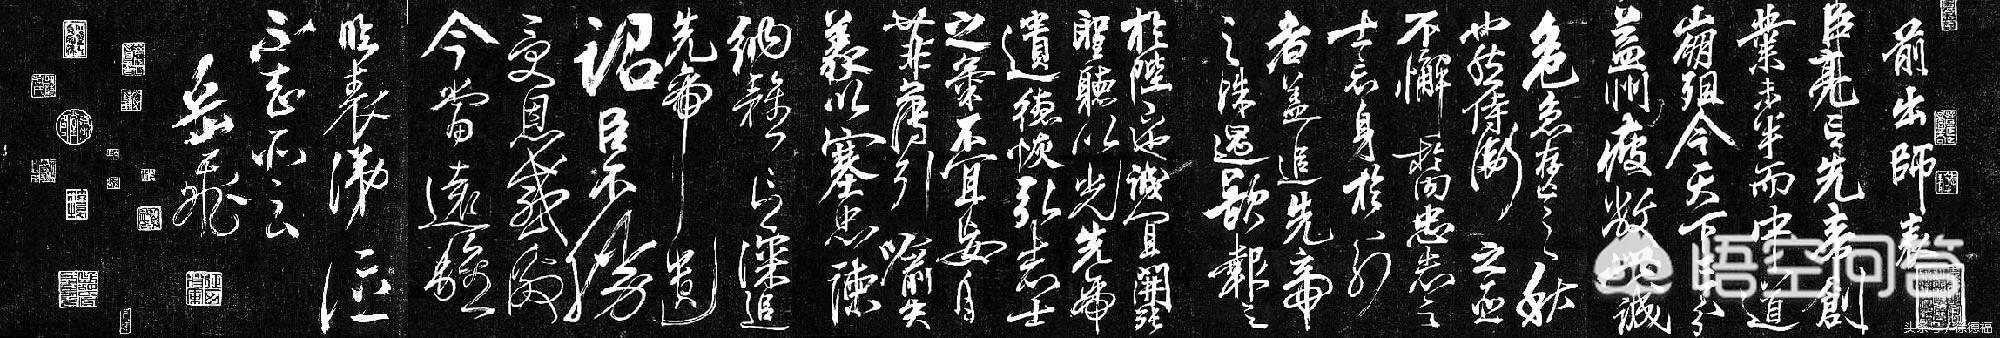 前出師表
臣亮言先帝創
業未半而中道
崩殂今天下三分
益州疲敝此誠
危急存亡之秋
也然侍衛之臣
不懈於內忠志之
士忘身於外
者蓋追先帝
之殊遇欲報之
於陛下也誠宜開張
聖聽以光先帝
遺德恢弘志士
之氣不宜妄自
菲薄引喻失
義以塞忠諫
納雅言深追
先帝遺
詔臣不勝
受恩感激
今當遠離
臨表涕泣
不知所云
岳飛
悟空问答
头条号 / 徐德福